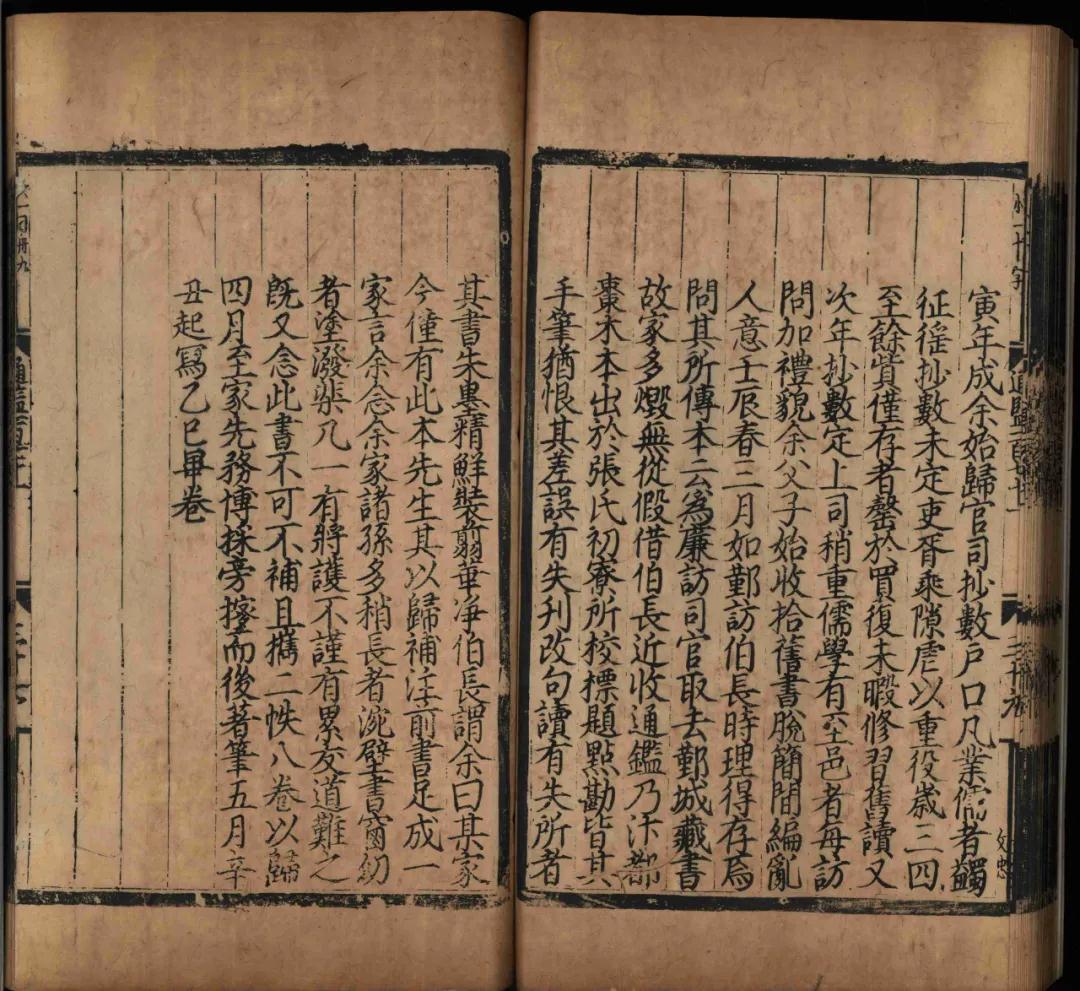 寅年成余始歸官司抄數戶口凡業儒者蠲
征徭抄數未定吏胥乘隙虐以重役歲三四
至餘貲僅存者罄於買復未暇修習舊讀又
次年抄數定上司稍重儒學有至邑者每訪
問加禮貌余父子始收拾舊書脫簡間編亂
人意壬辰春三月如鄞訪伯長時理得存焉
問其所傳本云為廉訪司官取去鄞城藏書
故家多燬無從假借伯長近收通鑑乃汴都
棗木本出於張氏初寮所校標題點勘皆其
手筆猶恨其差誤有失刊改句讀有失所者
文忠
其書朱墨精鮮裝翦華净伯長謂余曰其家
今僅有此本先生其以歸補注前書足成一
家言余念余家諸孫多稍長者涴壁書窗幼
者塗潑柴几一有將護不謹有累友道難之
既又念此書不可不補且攜二帙八卷以歸
四月至家先務博採旁搜而後著筆五月辛
丑起寫乙巳畢卷